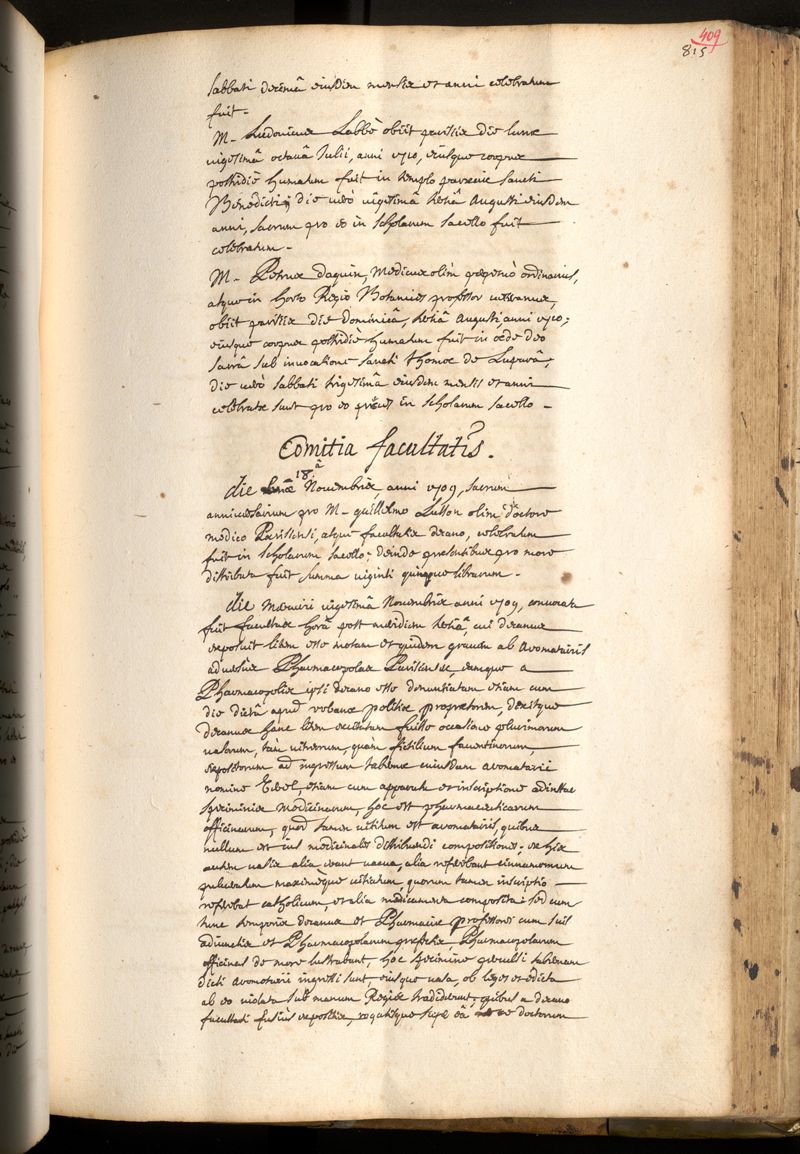 409
815
sabbati decimâ eiusdem mensis et anni celebratum
fuit -
M - Ludovicus Labbé obiit parisiis die lunæ
vigesimâ octavâ Julii, anni 1710, eiusque corpus
postridiè humatum fuit in templo paroeciæ sancti
Benedicti; die verò vigesimâ tertiâ Augusti eiusdem
anni, sacrum pro eo in scholarum sacello fuit
celebratum -
M - Petrus Daquin, Medicus olim regius ordinarius,
atque in horto Regio Botanices professor veteranus,
obiit parisiis die dominicâ, tertiâ Augusti, anni 1710;
eiusque corpus postridiè humatum fuit in æde deo
sacrâ sub invocatione sancti thomæ de Luparâ;
die verò sabbati trigesimâ eiusdem mensis et anni
celebratæ sunt pro eo preces in scholarum sacello -
Comitia facultatis.
die 18â Novembris, anni 1709, sacrum
anniversarium pro M - guillelmo Lusson olim doctore
medico Parisiensi, atque facultatis decano, celebratum
fuit in scholarum sacello; deinde præsentibus pro more
distributa fuit summa viginti quinque librarum -
die Mercurii vigesimâ Novembris anni 1709, convocata
fuit facultas horâ post meridiem tertiâ, cui decanus
exposuit litem esse motam et quidem gravem ab Aromatariis
adversus Pharmacopolas Parisienses, eamque a
Pharmacopolis ipsi decano esse denuntiatam etiam cum
die dictâ apud urbanæ politiæ propretorem, dixitque
decanus hanc litem excitatam fuisse occasione plurimorum
vasorum, tàm vitreorum, quàm fictilium faventinorum,
expositorum ad ingressum tabernæ cuiusdam aromatarii
nomine, etiam cum apparatu et inscriptione ad instar
speciminis medicinarum, hoc est pharmaceuticarum
officinarum, quod tamen vetitum est aromatariis, quibus
nullum est ius medicinales distribuendi compositiones; ex his
autem vasis alia erant vacua, alia referebant cinnamomum
pulveratum maximèque vitiatum, quorum tamen inscriptio
referebat catholicum, et alia medicamenta composita: sed cum
tunc temporis decanus et Pharmaciæ professores cum suis
adiunctis et Pharmacopolarum præfectis, Pharmacopolarum
officinas de more lustrabant, hoc specimine perculsi tabernam
dicti aromatarii ingressi sunt, eiusque vasa, ob leges et edicta
ab eo violata sub manum Regis tradiderunt; quibus a decano
facultati fusiùs expositis, rogatisque super eâ re doctorum